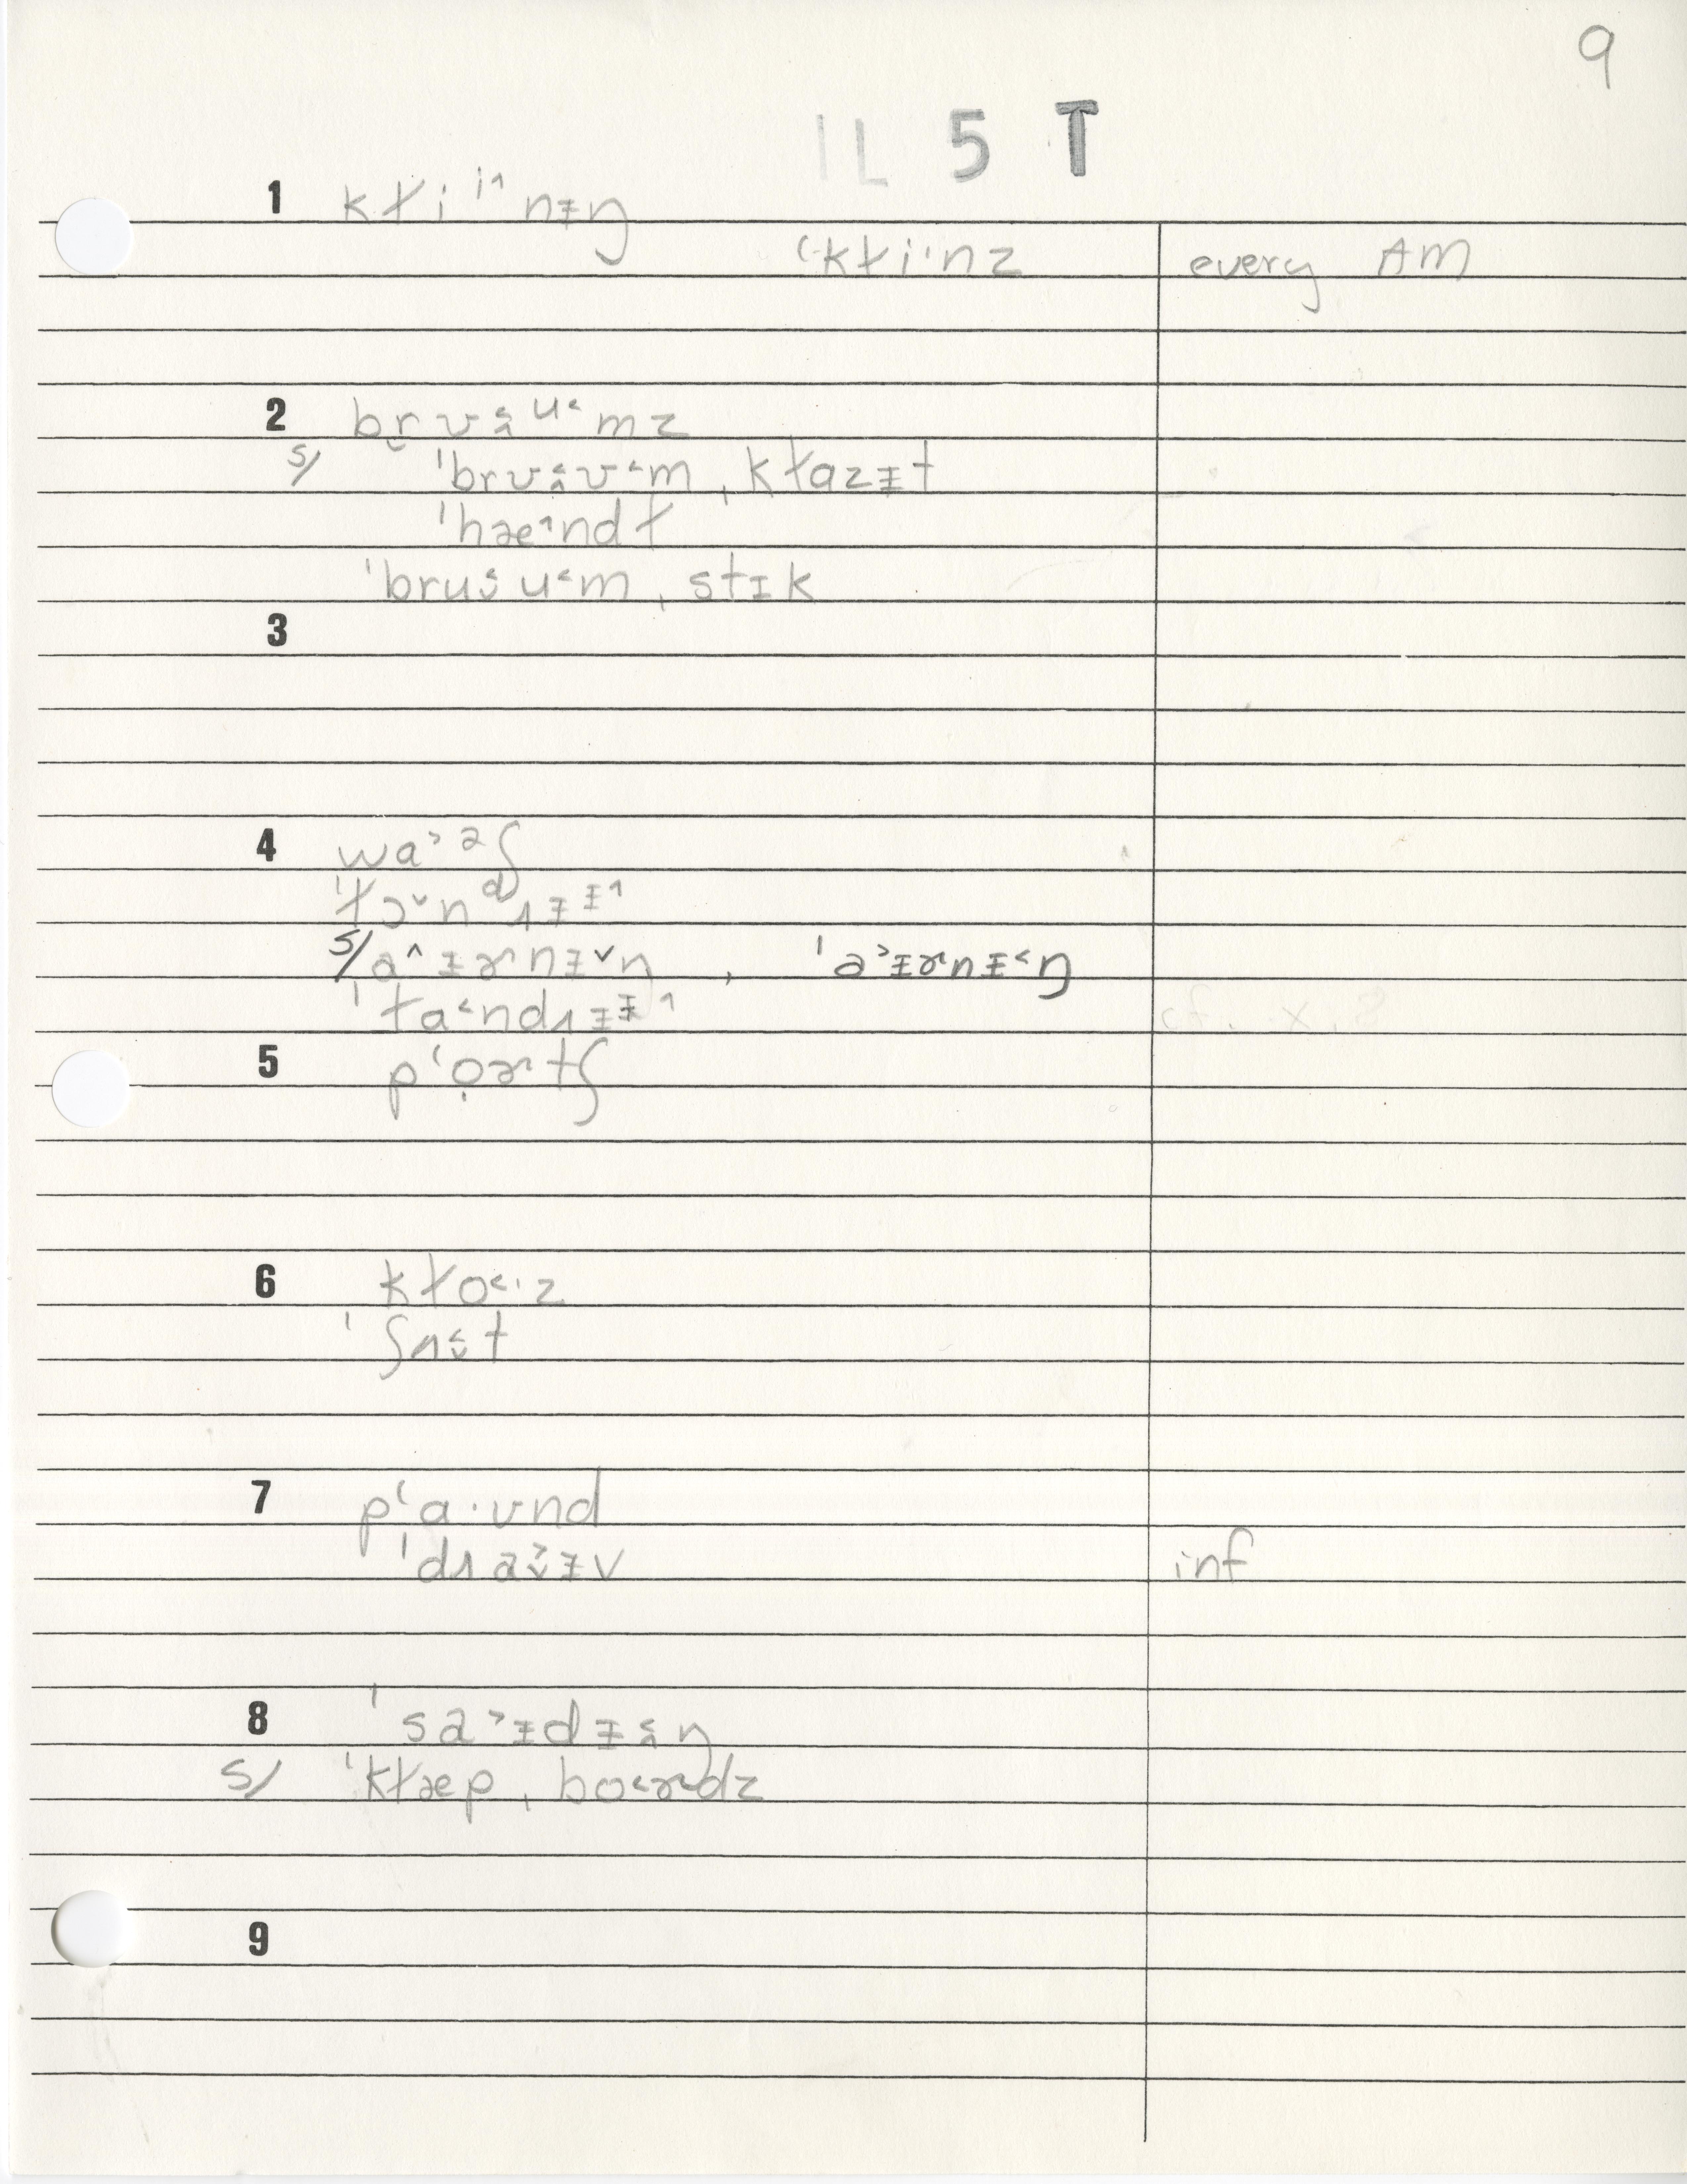 9
IL 5 T
1 kɫiⁱ˄nɨŋ
ˈkɫi·nz every AM
2 br̬ʊ˂˄ᵘ˂mz
s/ ˈbrʊ˂˄ʊ˂m ˌkɫɑzɨt
ˈhæ˄ndɫ
ˈbru˂˅u˂m ˌstɪk
3
4 wa˃ᵊʃ
ˈɫɔ˅nᵈɹɨᶤ˄
s/ a˄ɨɚnɨ˅ŋ , ˈa˃ɨɚnɨ˂ŋ
ˈɫa˂ndɹɨᶤ˄
5 pʻọɚtʃ
6 kɫo˂·z
ˈʃʌ˂˅t
7 pʻa·ʊnd
ˈdɹa˃˅ɨv inf
8 ˈsa˃ɨdɨ˂˄ŋ
s/ ˈkɫæp ˌbo˂ɚdz
9